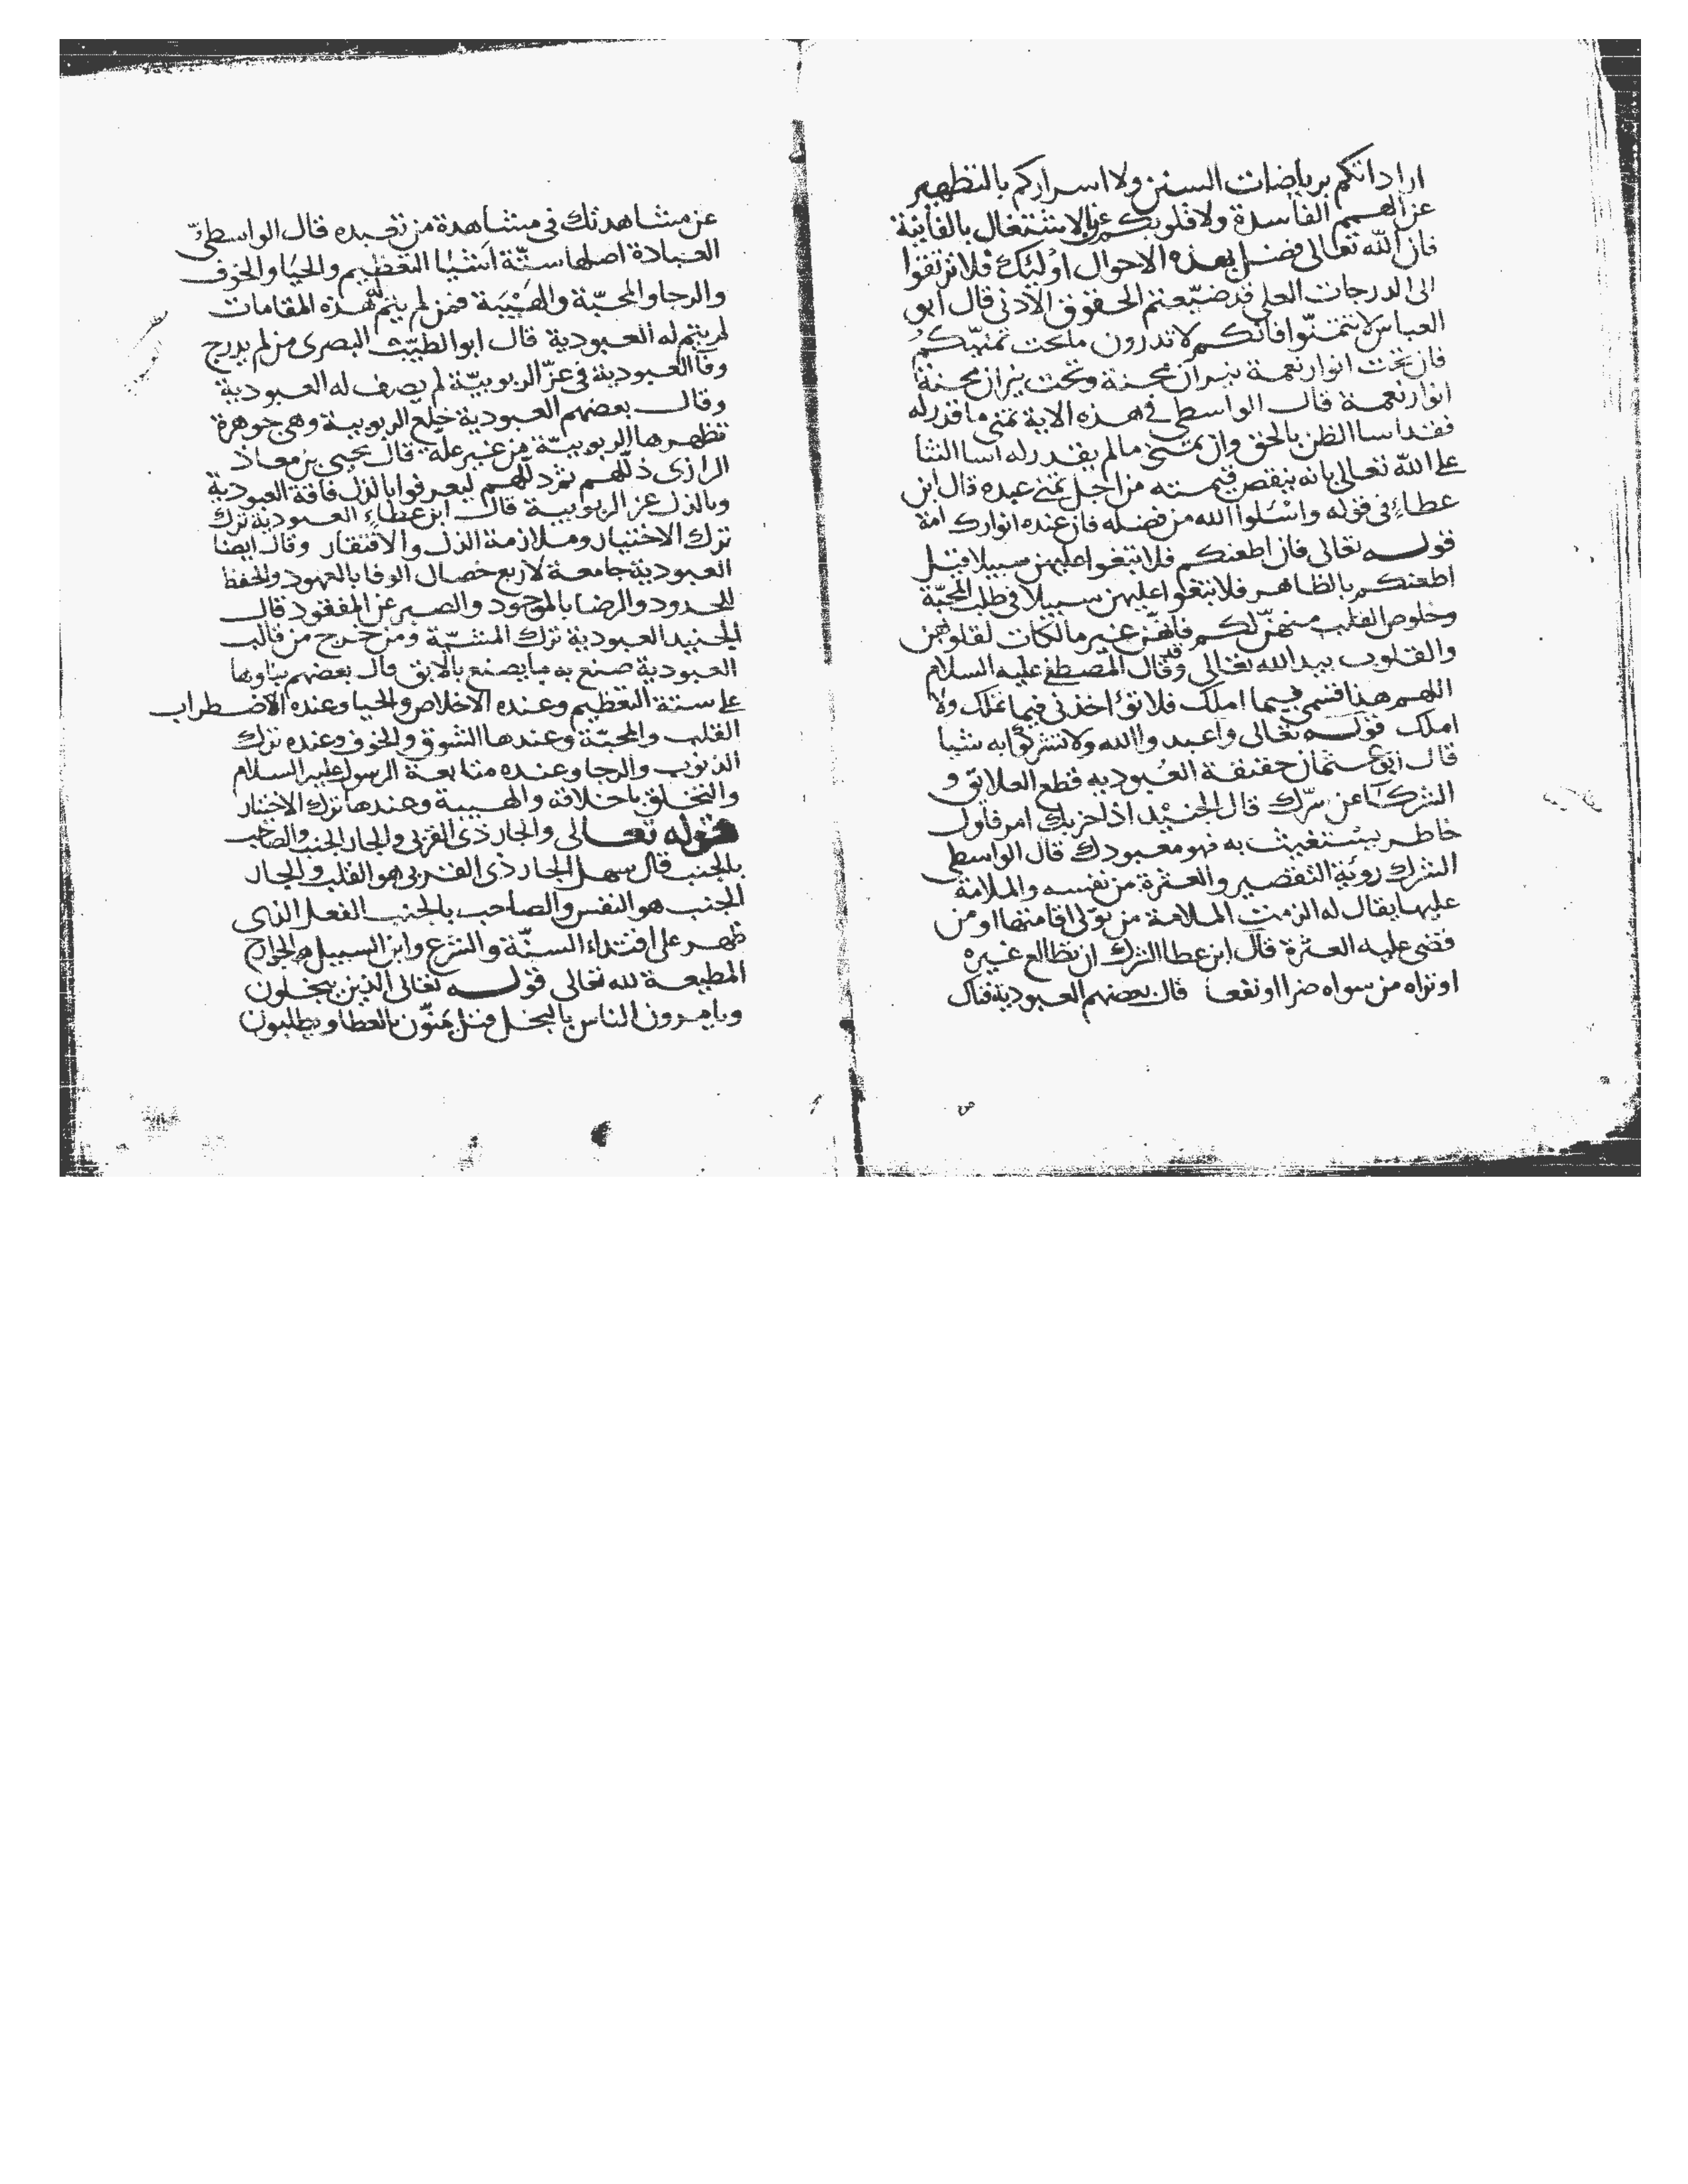 اراداتكم برياضات السنن ولا اسراركم بالتطهير
عن الهمم الفاسدة ولا قلوبكم عن الاشتغال بالفانية
فان الله تعالى فضل بهذه الاحوال اوليك فلا ترتقوا
الى الدرجات العلى قد ضيعتم الحقوق الادنى قال ابو
العباس لا تتمنوا فانكم لا تدرون ما تحت تمنيكم
فان تحت انوار نعمة نيران محنة وتحت نيران محنة
انوار نعمة قال الواسطى فى هذه الاية تمنى ما قدر له
فقد اسا الظن بالحق وان تمنى ما لم يقدر له اسا الثنا
على الله تعالى بانه ينقص قيمته من اجل تمنى عبده قال ابن
عطاء فى قوله واسئلوا الله من فضله فان عنده انوار كرامة
قوله تعالى فان اطعنكم فلا تبتغوا عليهن سبيلا قيل
اطعنكم بالظاهر فلا تبتغوا عليهن سبيلا فى طلب المحبة
وخلوص القلب منهن لكم فانهن غير مالكات لقلوبهن
والقلوب بيد الله تعالى وقد قال المصطفى عليه السلام
اللهم هذا قسمى فيما املك فلا تؤاخذنى فيما تملك ولا
املك قوله تعالى واعبدوا الله ولا تشركوا به شيا
قال ابو عثمان حقيقة العبوديه قطع العلايق و
الشركا عن سرك قال الجنيد اذا حزبك امر فاول
خاطر يستغيث به فهو معبودك قال الواسطى
الشرك روية التقصير والعثرة من نفسه والملامة
عليها يقال له الزمت الملامة من تولى اقامتها او من
قضى عليه العثرة قال ابن عطا الشرك ان تطالع غيره
او تراه من سواه ضرا او نفعا قال بعضهم العبودية فناك
عن مشاهدتك فى مشاهدة من تعبده قال الواسطى
العبادة اصلها ستة اشيا التعظيم والحيا والخوف
والرجا والمحبة والهيبة فمن لم يتم له هذه المقامات
لم يتم له العبودية قال ابو الطيب البصرى من لم يدرج
وفا العبودية فى عز الربوبية لم يصف له العبودية
وقال بعضهم العبودية خلع الربوبية وهى جوهرة
تظهرها الربوبية من غير علة قال يحيى بن معاذ
الرازى ذللهم ثم دللهم ليعرفوا بالذل فاقة العبودية
وبالذل عز الربوبية قال ابن عطاء العبودية ترك
ترك الاختيار وملازمة الذل والافتقار وقال ايضا
العبودية جامعة لاربع خصال الوفا بالعهود والحفظ
للحدود والرضا بالموجود والصبر عن المفقود قال
الجنيد العبودية ترك المشية ومن خرج من قالب
العبودية صنع به ما يصنع بالابق قال بعضهم بناوها
على ستة التعظيم وعنده الاخلاص والحيا وعنده الاضطراب
القلب والمحبة وعندها الشوق والخوف وعنده ترك
الذنوب والرجا وعنده متابعة الرسول عليه السلام
والتخلق باخلاقه والهيبة وعندها ترك الاختيار
قوله تعالى والجار ذى القربى والجار الجنب والصاحب
بالجنب قال سهل الجار ذى القربى هو القلب والجار
الجنب هو النفس والصاحب بالجنب الفعل الذى
ظهر على اقتداء السنة والشرع وابن السبيل هو الجوارح
المطيعة لله تعالى قوله تعالى الذين يبخلون
ويامرون الناس بالبخل قيل يمنون بالعطا ويطلبون